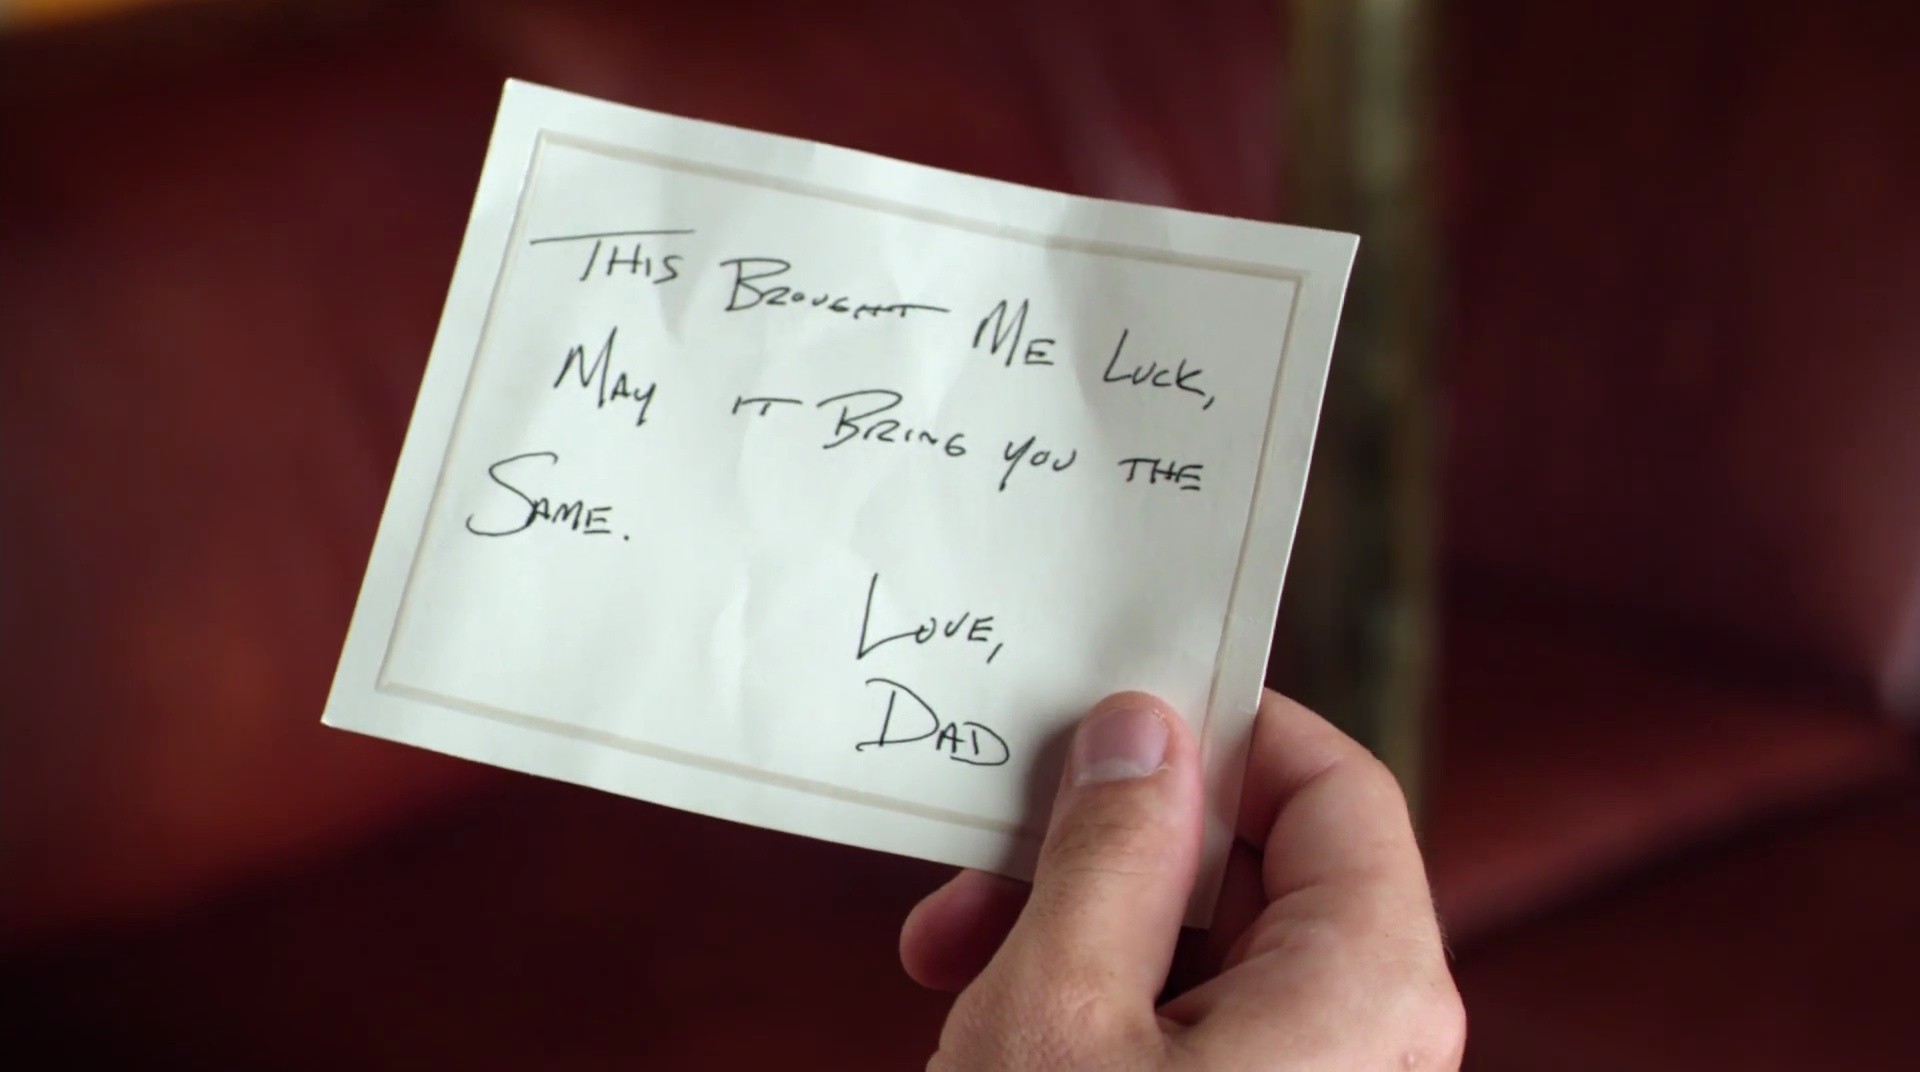 THIS BROUGHT ME LUCK,
MAY IT BRING YOU THE
SAME.
LOVE,
DAD